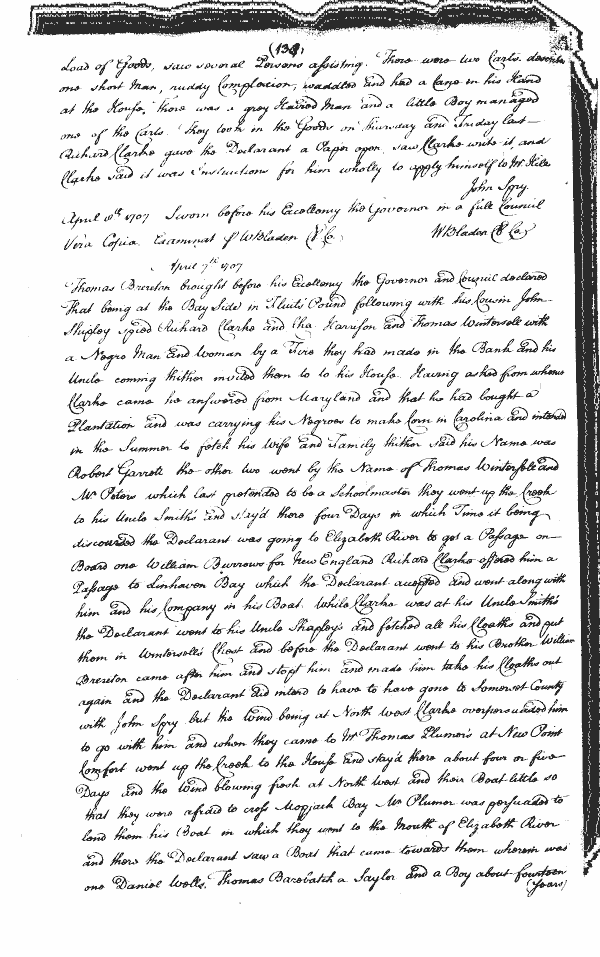 (138)
Load of Goods, saw several Persons assisting. There were two Carts.
one short Man, ruddy Complexion, waddled and had a Cane in his Hand
at the House, there was a grey Haired Man and a little Boy managed
one of the Carts. They took in the Goods on Thursday and Friday last
Richard Clarke gave the Declarant a Paper open, saw Clarke write it, and
Clarke said it was Instructions for him wholly to apply himself to Mr
John Spry
April 8th 1707 Sworn before his Excellency the Governor in a full Council
Vera Copia. Examinat WBladen Cl Co. WBladen Cl Co
April 7th 1707
Thomas Brereton brought before his Excellency the Governor and Council declared
That being at the Bay Side in Pound following with his Cousin John
Shapley spied Richard Clarke and Cha. Harrison and Thomas Wintersell with
a Negro Man and Woman by a Fire they had made in the Bank and his
Uncle coming thither invited them to to his House. Having asked from whence
Clarke came he answered from Maryland and that he had bought a
Plantation and was carrying his Negroes to make Corn in Carolina and intended
in the Summer to fetch his Wife and Family thither said his Name was
Robert Garrett the other two went by the Name of Thomas Wintersell and
Mr Peters which last pretended to be a Schoolmaster they went up the Creek
to his Uncle Smiths and stay'd there four Days in which Time it being
discoursed the Declarant was going to Elizabeth River to get a Passage on
Board one William Burrows for New England Richard Clarke offered him a
Passage to Linhaven Bay which the Declarant accepted and went along with
him and his Company in his Boat. While Clarke was at his Uncle Smith's
the Declarant went to his Uncle Shapley's and fetched all his Cloaths and put
them in Wintersell's Chest and before the Declarant went to his Brother William
Brereton came after him and stopt him and made him take his Cloaths out
again and the Declarant did intend to have to have gone to Somerset County
with John Spry but the Wind being at North West Clarke overpersuaded him
to go with him and when they came to Mr Thomas Plumer's at New Point
Comfort went up the Creek to the House and stay'd there about four or five
Days and the Wind blowing fresh at North West and their Boat little so
that they were afraid to cross Mopjack Bay Mr Plumer was persuaded to
lend them his Boat in which they went to the Mouth of Elizabeth River
and there the Declarant saw a Boat that came towards them wherein was
one Daniel Wells, Thomas Barebatch a Saylor and a Boy about fourteen
(Years)